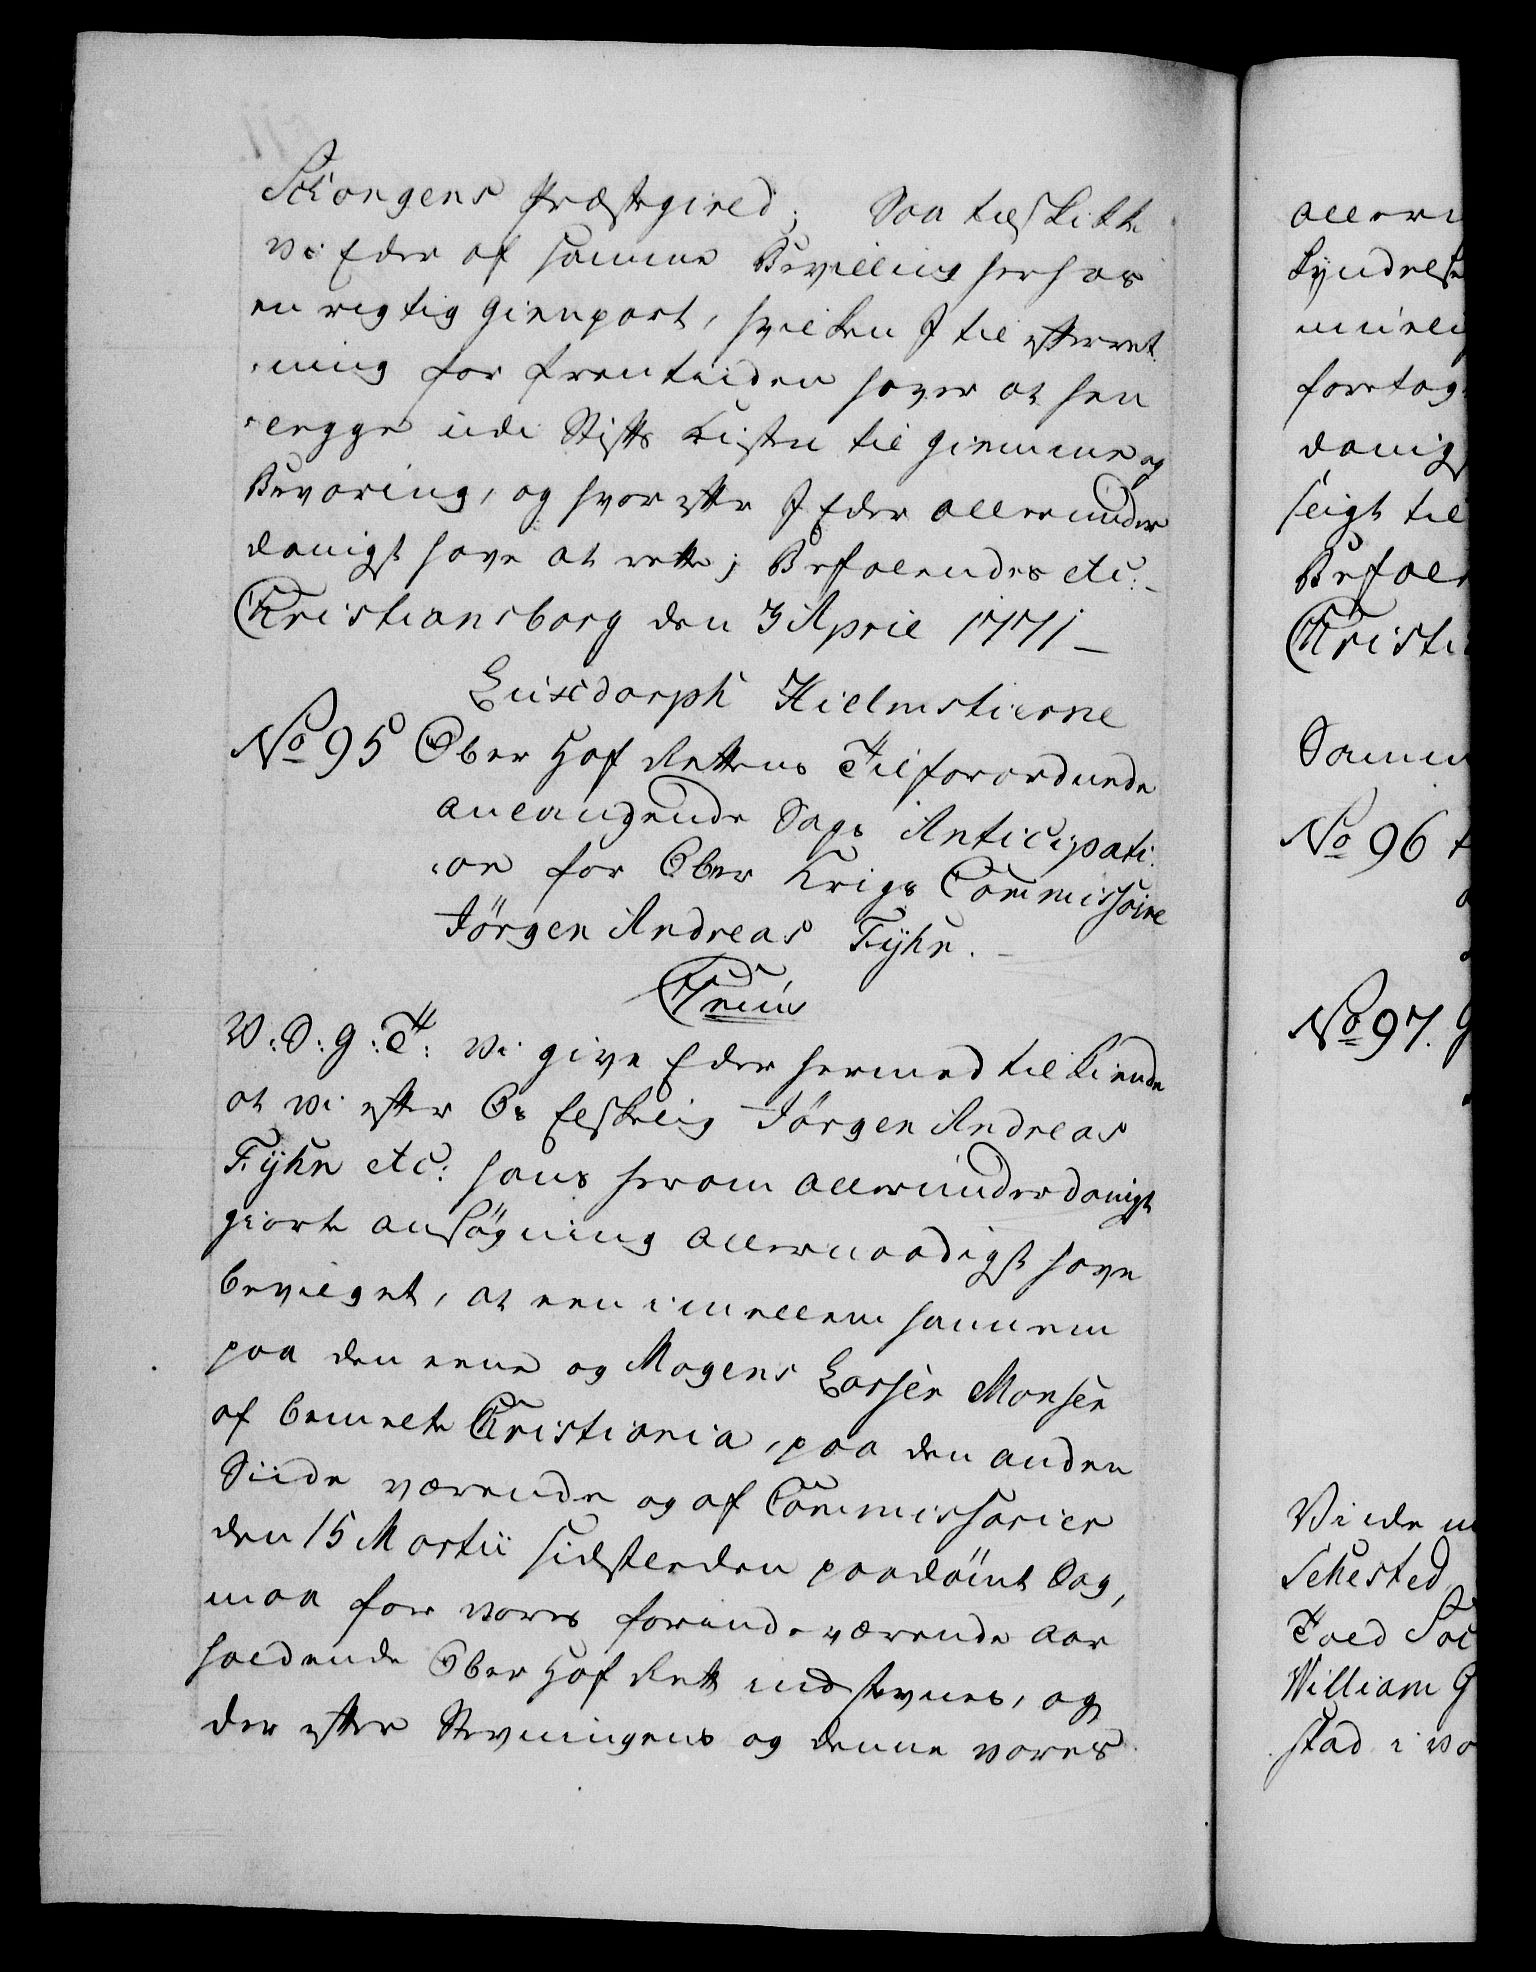 Schiongens Præstegield; Saa tilskikke
Vi Eder af samme Bevilling herhos
en rigtig Gienpart, hvilken I til efterret
ning for fremtiiden haver at hen
legge udi Stifts Kisten til Giemme og
Bevaring, og hvorefter I Eder allerunder
danigst have at rette; Befalendes etc:
Christiansborg den 3 April 1771
Luxdorph Hielmstierne
No 95 Ober Hof Rettens Tilforordnede
anlangende Sags Anticipati
on for Ober Krigs Commissaire
Jörgen Andreas Fyhn.
V: S: G: T: Vi give Eder hermed tilkiende
at vi efter Os Elskelig Jörgen Andreas
Fyhn etc: hans herom allerunderdanigst
giorte ansøgning allernaadigst have
bevilget, at een imellem hannem
paa den eene og Mogens Larsen Monsen
af bemelte Christiania, paa den anden
Siide værende og af Commissarier
den 15 Martii sidstleeden paadömt Sag,
maa for vores forindeværende Aar
holdende Ober Hof Rett indstevnes, og
der efter Stevningens og denne vores
alleru
kyndelse
muelig
foretag
danigs
seigt til
Befale
Christi
Samm
No 96
No 97. G
Viide
Sehested
Toed Soe
William G
stad i vo